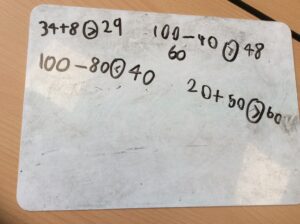 34+8 > 29
100-40 > 48
60
100-80 < 40
20+50 > 60